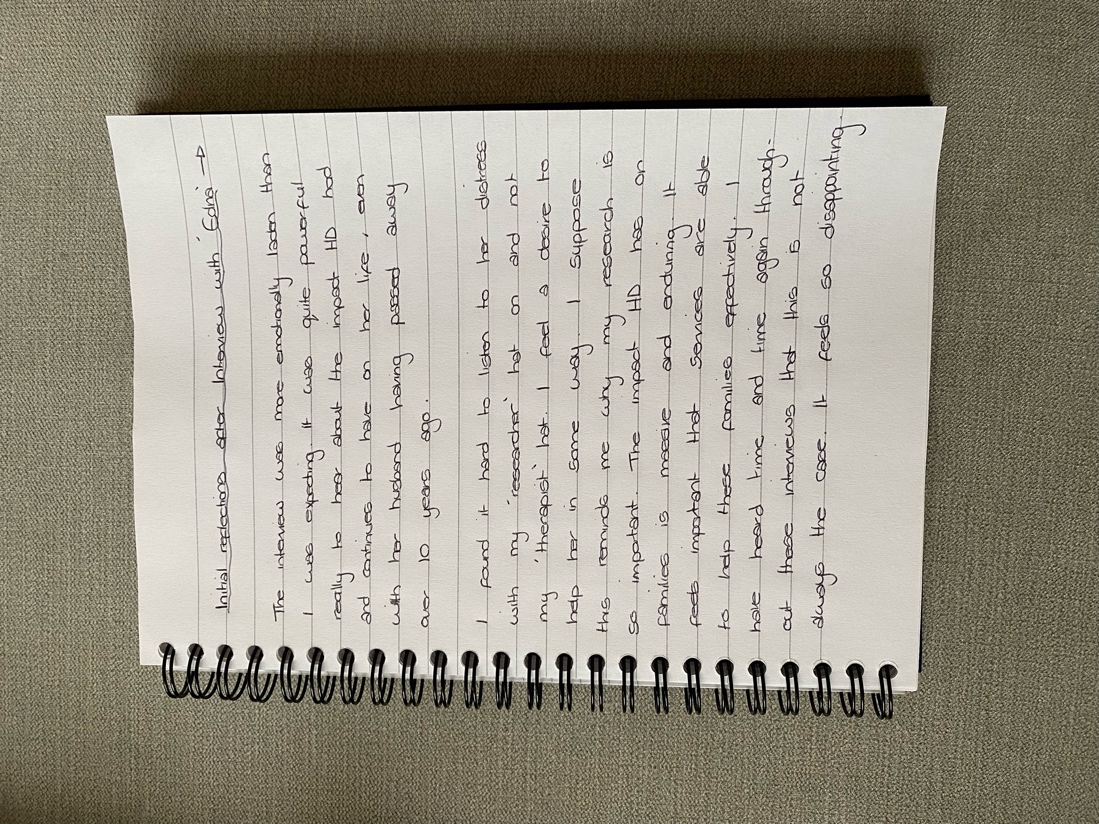 Initial reflections after Interview with 'Edna' →
The interview was more emotionally laden than
I was expecting. It was quite powerful
really to hear about the impact HD had
and continues to have on her life, even
with her husband having passed away
over 10 years ago.
I found it hard to listen to her distress
with my 'researcher' hat on and not
my 'therapist' hat. I feel a desire to
help her in some way. I suppose
this reminds me why my research is
so important. The impact HD has on
families is massive and enduring. It
feels important that services are able
to help these families effectively. I
have heard time and time again through-
out these interviews that this is not
always the case. It feels so disappointing.